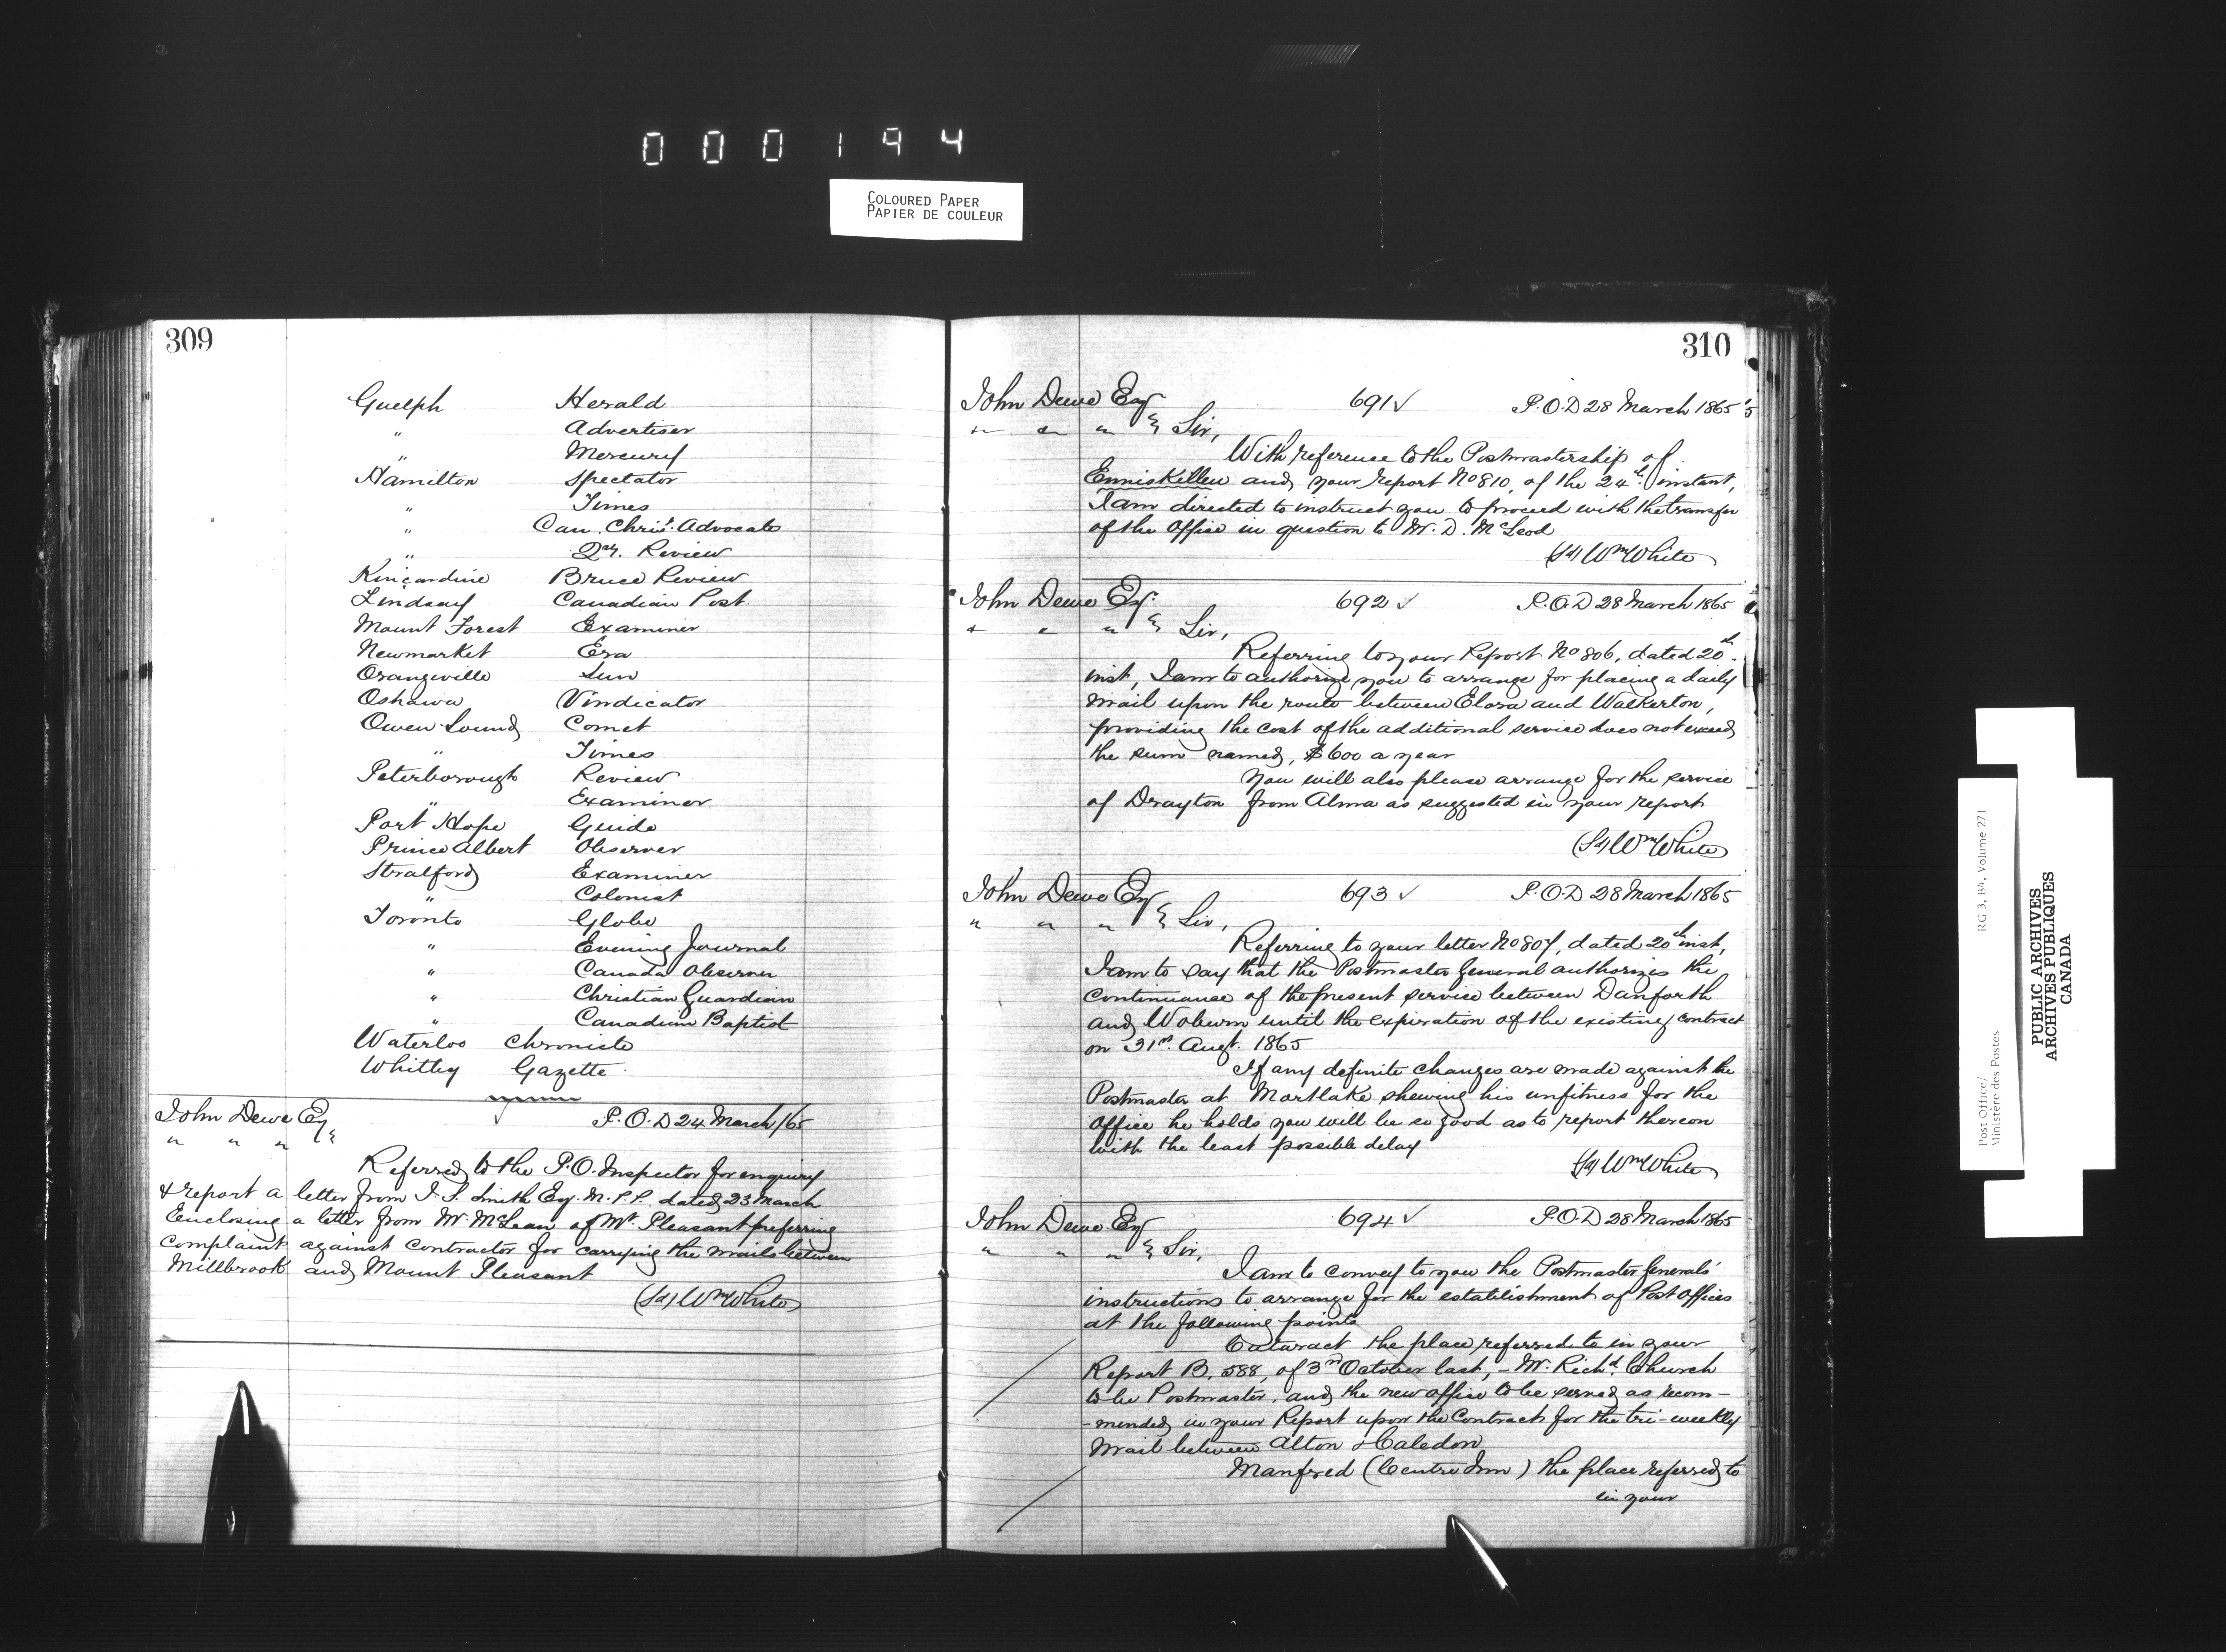 000194
COLOURED PAPER
PAPIER DE COULEUR
309
Guelph Herald
" Advertiser
" Mercury
Hamilton Spectator
" Times
" Can. Chrisn. Advocate
" Qrly. Review
Kincardine Bruce Review
Lindsay Canadian Post
Mount Forest Examiner
Newmarket Era
Orangeville Sun
Oshawa Vindicator
Owen Sound Comet
" Times
Peterborough Review
" Examiner
Port Hope Guide
Prince Albert Observer
Stratford Examiner
" Colonist
Toronto Globe
" Evening Journal
" Canada Observer
" Christian Guardian
" Canadian Baptist
Waterloo Chronicle
Whitby Gazette
John Dewe Esq P.O.D 24 March/65
" " " &
Referred to the P.O. Inspector for enquiry
& report a letter from J. S. Smith Esq. M.P.P. dated 23 March
Enclosing a letter from Mr. McLean of Mt. Pleasant preferring
complaint against Contractor for carrying the mails between
Millbrook and Mount Pleasant
(Sd) Wm White
310
John Dewe Esq 691 ✓ P.O.D 28 March 1865
" " " & Sir,
With reference to the Postmastership of
Enniskillen and your report No 810, of the 24th instant,
I am directed to instruct you to proceed with the transfer
of the Office in question to Mr. D. McLeod
(Sd) Wm White
John Dewe Esq. 692 ✓ P.O.D 28 March 1865
" " " & Sir,
Referring to your Report No 806, dated 20th.
inst, I am to authorize you to arrange for placing a daily
mail upon the route between Elora and Walkerton,
providing the cost of the additional service does not exceed
the sum named, $600 a year
You will also please arrange for the service
of Drayton from Alma as suggested in your report
(Sd) Wm White
John Dewe Esq 693 ✓ P.O.D 28 March 1865
" " " & Sir,
Referring to your letter No 807, dated 20th inst,
I am to say that the Postmaster General authorizes the
continuance of the present service between Danforth
and Woburn until the expiration of the existing contract
on 31st. Augt. 1865
If any definite charges are made against the
Postmaster at Mortlake shewing his unfitness for the
Office he holds you will be so good as to report thereon
with the least possible delay
(Sd) Wm White
John Dewe Esq 694 ✓ P.O.D 28 March 1865
" " " & Sir,
I am to convey to you the Postmaster Generals'
instructions to arrange for the establishment of Post Offices
at the following points
Cataract the place referred to in your
Report B. 588, of 3rd October last, – Mr. Richd. Church
to be Postmaster, and the new office to be served as recom-
-mended in your Report upon the Contract for the tri-weekly
Mail between Alton & Caledon
Manfred (Centre Inn) the place referred to
in your
Post Office/ RG 3, B4, Volume 271
Ministère des Postes
PUBLIC ARCHIVES
ARCHIVES PUBLIQUES
CANADA